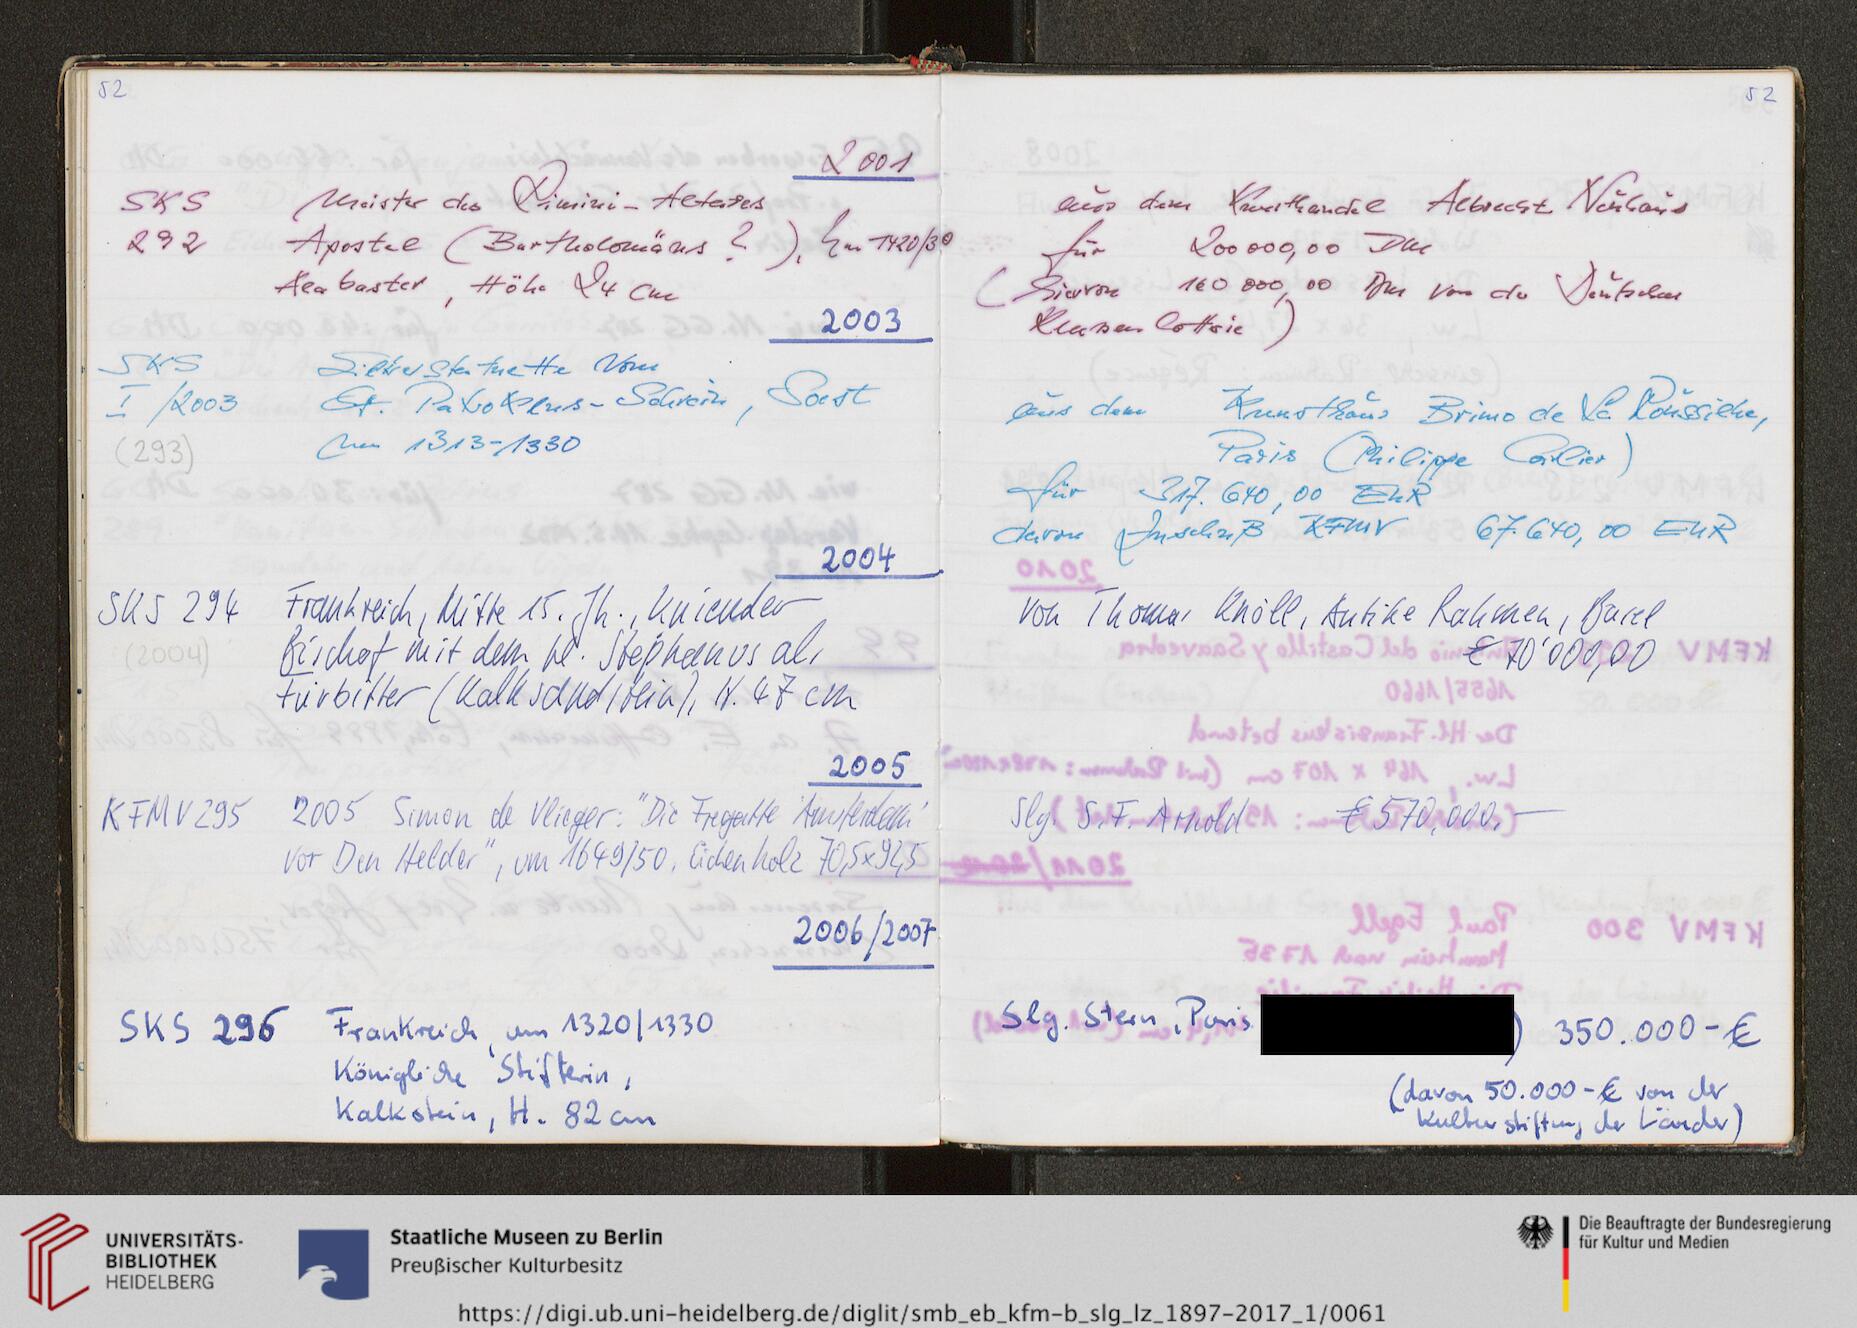 52
2001
SKS Meister des Rimini-Altares
292 Apostel (Bartholomäus ?), um 1420/30
Alabaster, Höhe 24 cm
2003
SKS Silberstatuette vom
I/2003 St. Patroklus-Schrein, Soest
(293) um 1313-1330
2004
SKS 294 Frankreich, Mitte 15. Jh., Kniender
(2004) Bischof mit dem hl. Stephanus als
Fürbitter (Kalksandstein), H. 47 cm
2005
KFMV 295 2005 Simon de Vlieger: "Die Fregatte 'Amsterdam'
vor Den Helder", um 1649/50, Eichenholz 70,5x92,5
2006/2007
SKS 296 Frankreich, um 1320/1330
Königliche Stifterin,
Kalkstein, H. 82 cm
52
aus dem Kunsthandel Albrecht Neuhaus
für 200 000,00 DM
(Hiervon 160 000,00 DM von der Deutschen
Klassenlotterie)
aus dem Kunsthaus Brimo de La Roussilhe,
Paris (Philippe Carlier)
für 317.640,00 EUR
davon Zuschuß KFMV 67.640,00 EUR
von Thomas Knöll, Antike Rahmen, Basel
€ 70'000,00
Slg. S.F. Arnold € 570.000.-
Slg. Stern, Paris ) 350.000-€
(davon 50.000-€ von der
Kulturstiftung der Länder)
UNIVERSITÄTS-
BIBLIOTHEK
HEIDELBERG
Staatliche Museen zu Berlin
Preußischer Kulturbesitz
Die Beauftragte der Bundesregierung
für Kultur und Medien
https://digi.ub.uni-heidelberg.de/diglit/smb_eb_kfm-b_slg_lz_1897-2017_1/0061